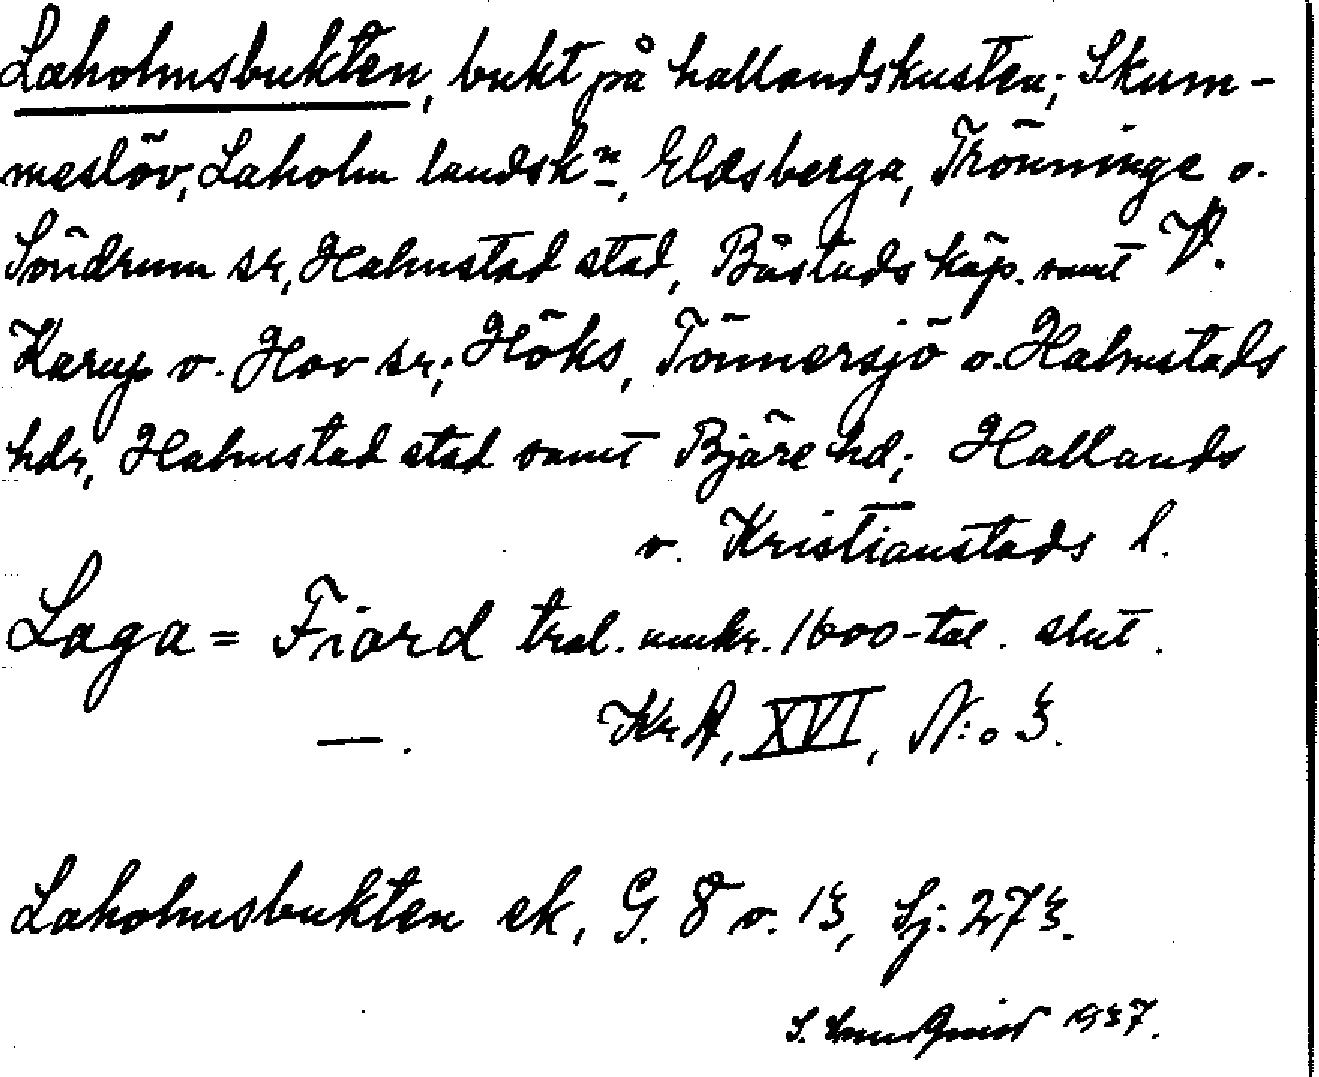 Laholmsbukten, bukt på hallandskusten; Skum-
meslöv, Laholm landskn, Eldsberga, Trönninge o.
Söndrum sr, Halmstad stad, Båstads köp. samt V.
Karup o. Hov sr; Höks, Tönnersjö o. Halmstads
hdr, Halmstad stad samt Bjäre hd; Hallands
o. Kristianstads l.
Laga = Fiord tral. omkr. 1600-tal. slut.
—. KrA, XVI, N:o 3.
Laholmsbukten ek, G. 8 o. 13, Sj: 273.
S. 1937.